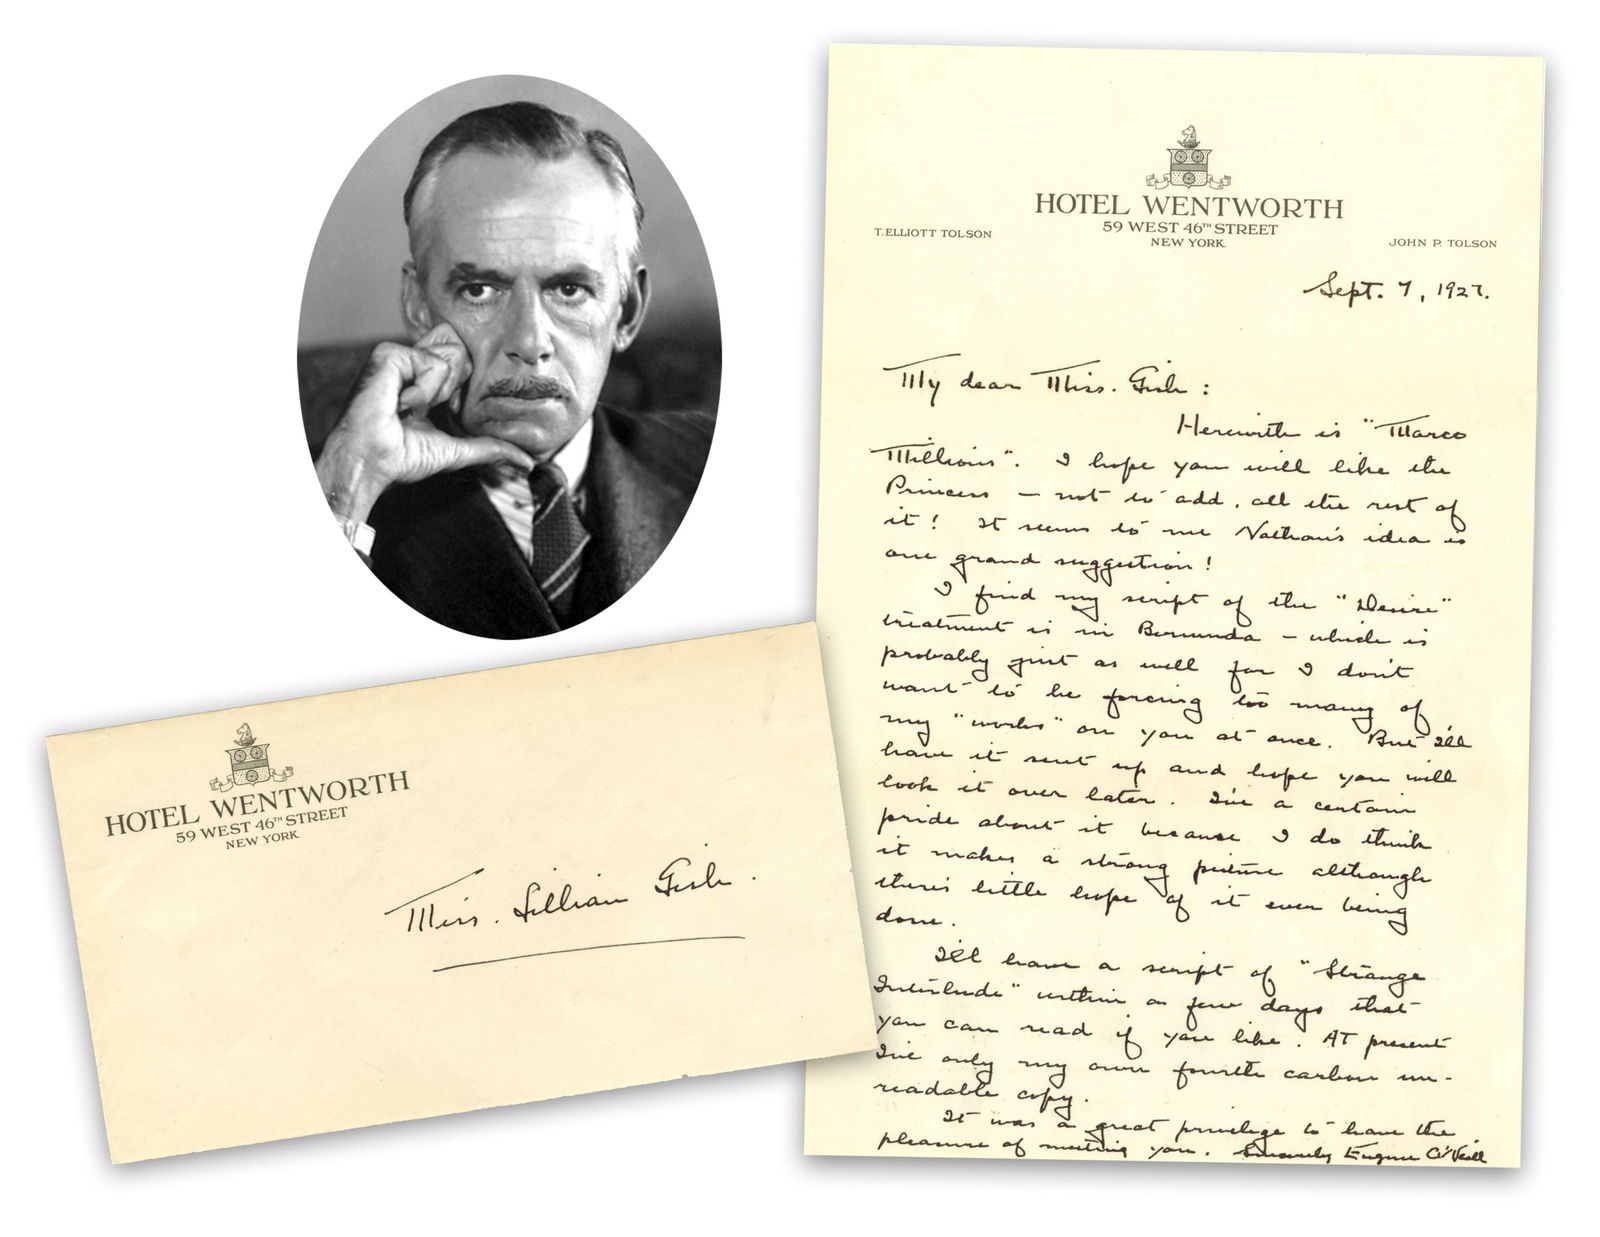 HOTEL WENTWORTH
59 WEST 46TH STREET
NEW YORK
T. ELLIOTT TOLSON
JOHN P. TOLSON
Sept. 7, 1927.
My dear Miss. Gish :
Herewith is "Marco
Millions". I hope you will like the
Princess — not to add, all the rest of
it! It seems to me Nathan's idea is
one grand suggestion!
I find my script of the "Desire"
treatment is in Bermuda — which is
probably just as well for I don't
want to be forcing too many of
my "works" on you at once. But I'll
have it sent up and hope you will
look it over later. I've a certain
pride about it because I do think
it makes a strong picture although
there's little hope of it ever being
done.
I'll have a script of "Strange
Interlude" within a few days that
you can read if you like. At present
I've only my own fourth carbon un-
readable copy.
It was a great privilege to have the
pleasure of meeting you. Sincerely Eugene O'Neill
HOTEL WENTWORTH
59 WEST 46TH STREET
NEW YORK
Miss. Lillian Gish.